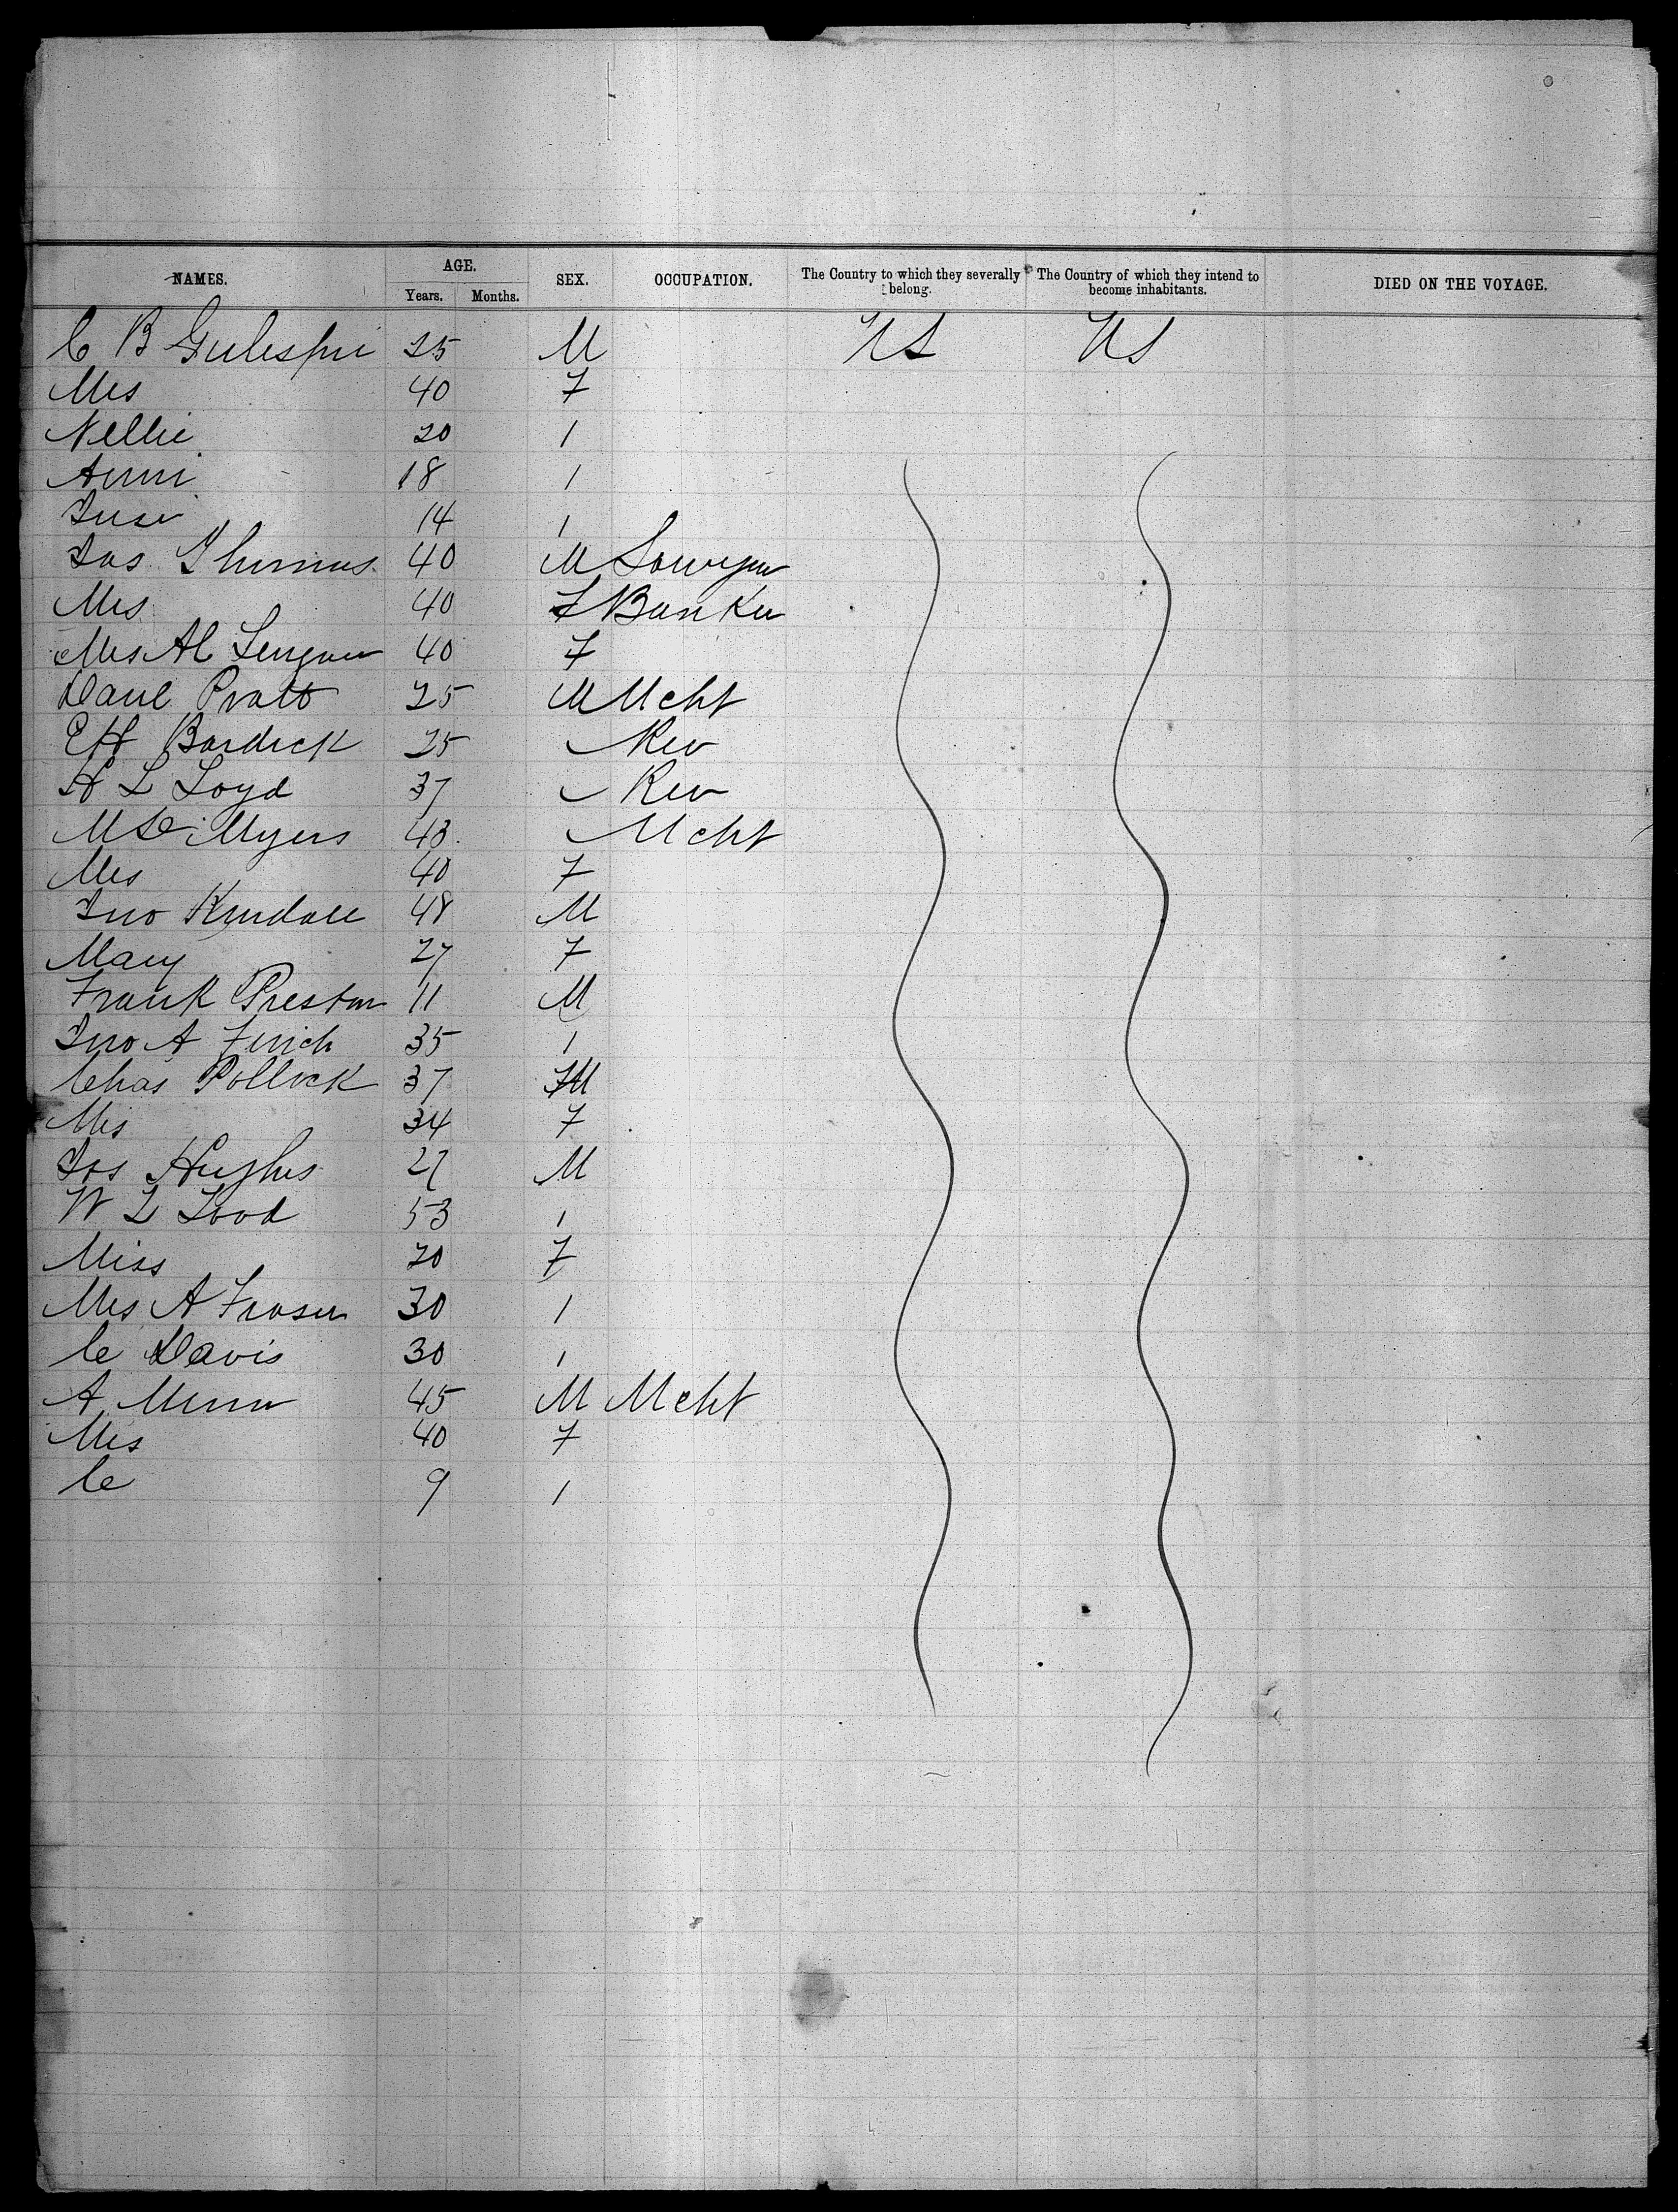 NAMES. AGE. SEX. OCCUPATION. The Country to which they severally belong. The Country of which they intend to become inhabitants. DIED ON THE VOYAGE.
Years. Months.
C B Gillespie 25 M US US
Mrs 40 F
Nellie 20 1
Anni 18 1
Susi 14 1
Jas Thomas 40 M Lawyer
Mrs 40 F Banker
Mrs Al 40 F
Danl Pratt 25 M Mcht
E H Burdick 25 Rev
H L Loyd 37 Rev
M Myers 43 Mcht
Mrs 40 F
Jno Kendall 48 M
Mary 27 F
Frank Preston 11 M
Jno A Finch 35 1
Chas Pollock 37 M
Mrs 34 F
Jos Hughes 27 M
W L Lood 53 1
Miss 20 F
Mrs A Fraser 30 1
C Davis 30 1
A 45 M Mcht
Mrs 40 F
C 9 1